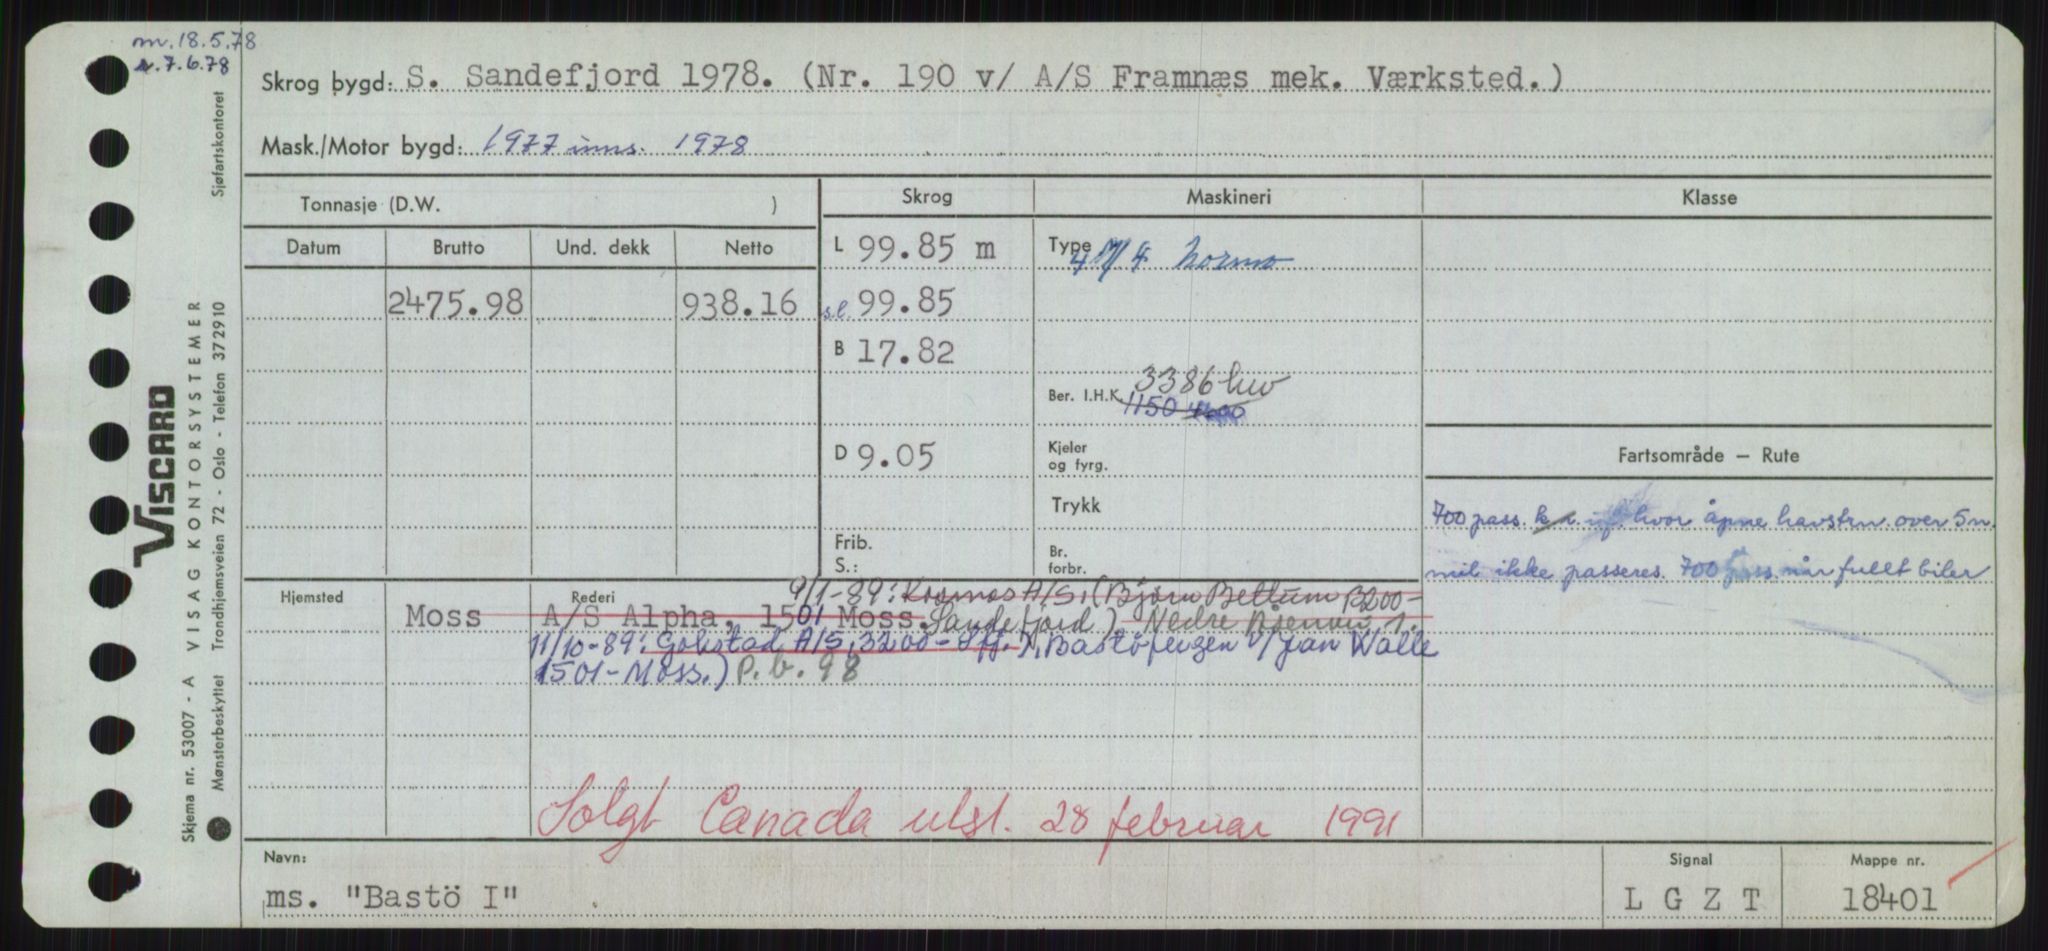 m. 18.5.78
n. 7.6.78
Skrog bygd: S. Sandefjord 1978. (Nr. 190 v/ A/S Framnæs mek. Værksted.)
Mask./Motor bygd: 1977 inns. 1978
Tonnasje (D.W. )
Skrog
Maskineri
Klasse
Datum Brutto Und. dekk Netto
L 99.85 m
Type
4 Normo
2475.98 938.16
s.l. 99.85
B 17.82
3386 hw
Ber. I.H.K. 1150
D 9.05
Kjeler
og fyrg.
Fartsområde — Rute
Trykk
700 pass. hvor åpne havstrn. over 5 n.
Frib.
S.:
Br.
forbr.
mil ikke passeres. 700 pass. når fullt biler
Hjemsted
Rederi
9/1-89: Kosmos A/S, (Bjørn Bettum 3200-
Moss A/S Alpha, 1501 Moss. Sandefjord) Nedre
11/10-89: Gokstad A/S, 3200 - Sfj. Bastöfergen v/Jan Walle
1501-Moss.) P.b. 98
Solgt Canada utsl. 28 februar 1991
Navn:
ms. "Bastö I"
Signal
L G Z T
Mappe nr.
18401
VISCARD
Skjema nr. 53007 - A VISAG KONTORSYSTEMER
Mønsterbeskyttet Trondhjemsveien 72 - Oslo - Telefon 372910 Sjøfartskontoret